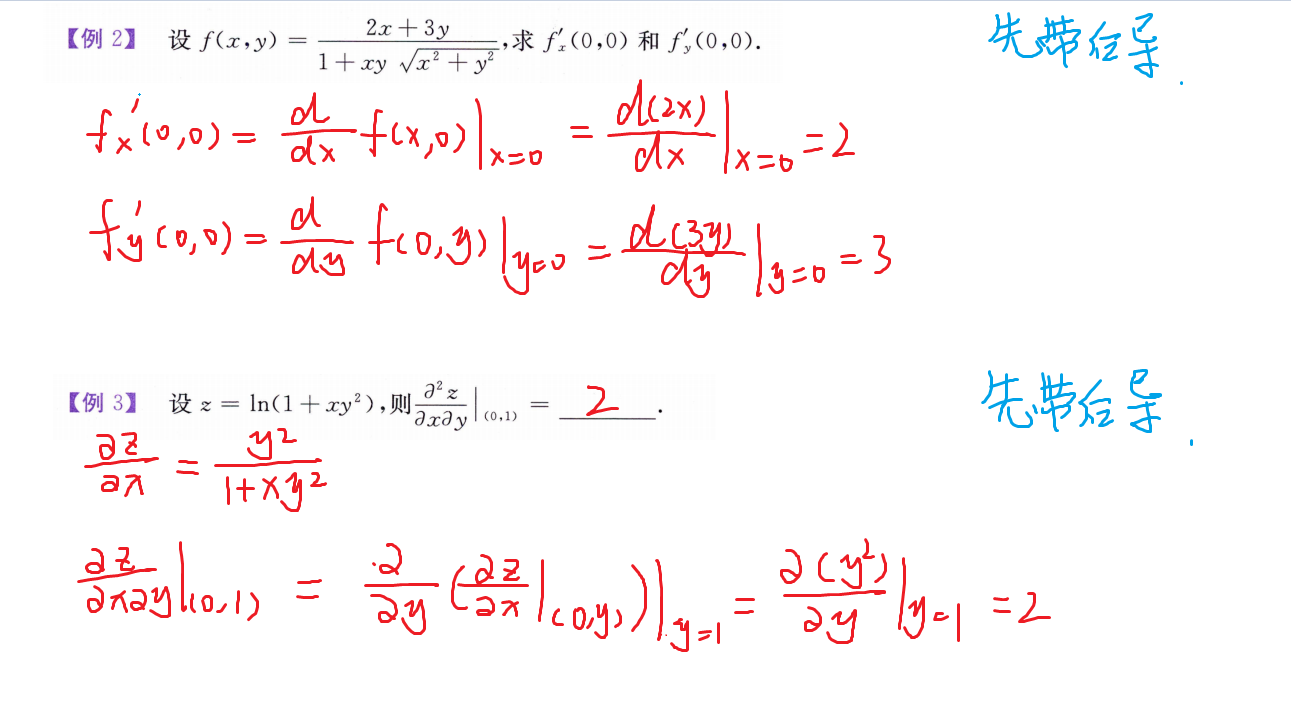 【例 2】 设 f(x,y) = \frac{2x+3y}{1+xy\sqrt{x^2+y^2}},求 f'_x(0,0) 和 f'_y(0,0).
先带后导.
f_x'(0,0) = \frac{d}{dx} f(x,0)|_{x=0} = \frac{d(2x)}{dx}|_{x=0} = 2
f_y'(0,0) = \frac{d}{dy} f(0,y)|_{y=0} = \frac{d(3y)}{dy}|_{y=0} = 3
【例 3】 设 z = ln(1+xy^2),则\frac{∂^2 z}{∂x∂y}|_{(0,1)} = 2.
先带后导.
\frac{∂z}{∂x} = \frac{y^2}{1+xy^2}
\frac{∂z}{∂x∂y}|_{(0,1)} = \frac{∂}{∂y}(\frac{∂z}{∂x}|_{(0,y)})|_{y=1} = \frac{∂(y^2)}{∂y}|_{y=1} = 2